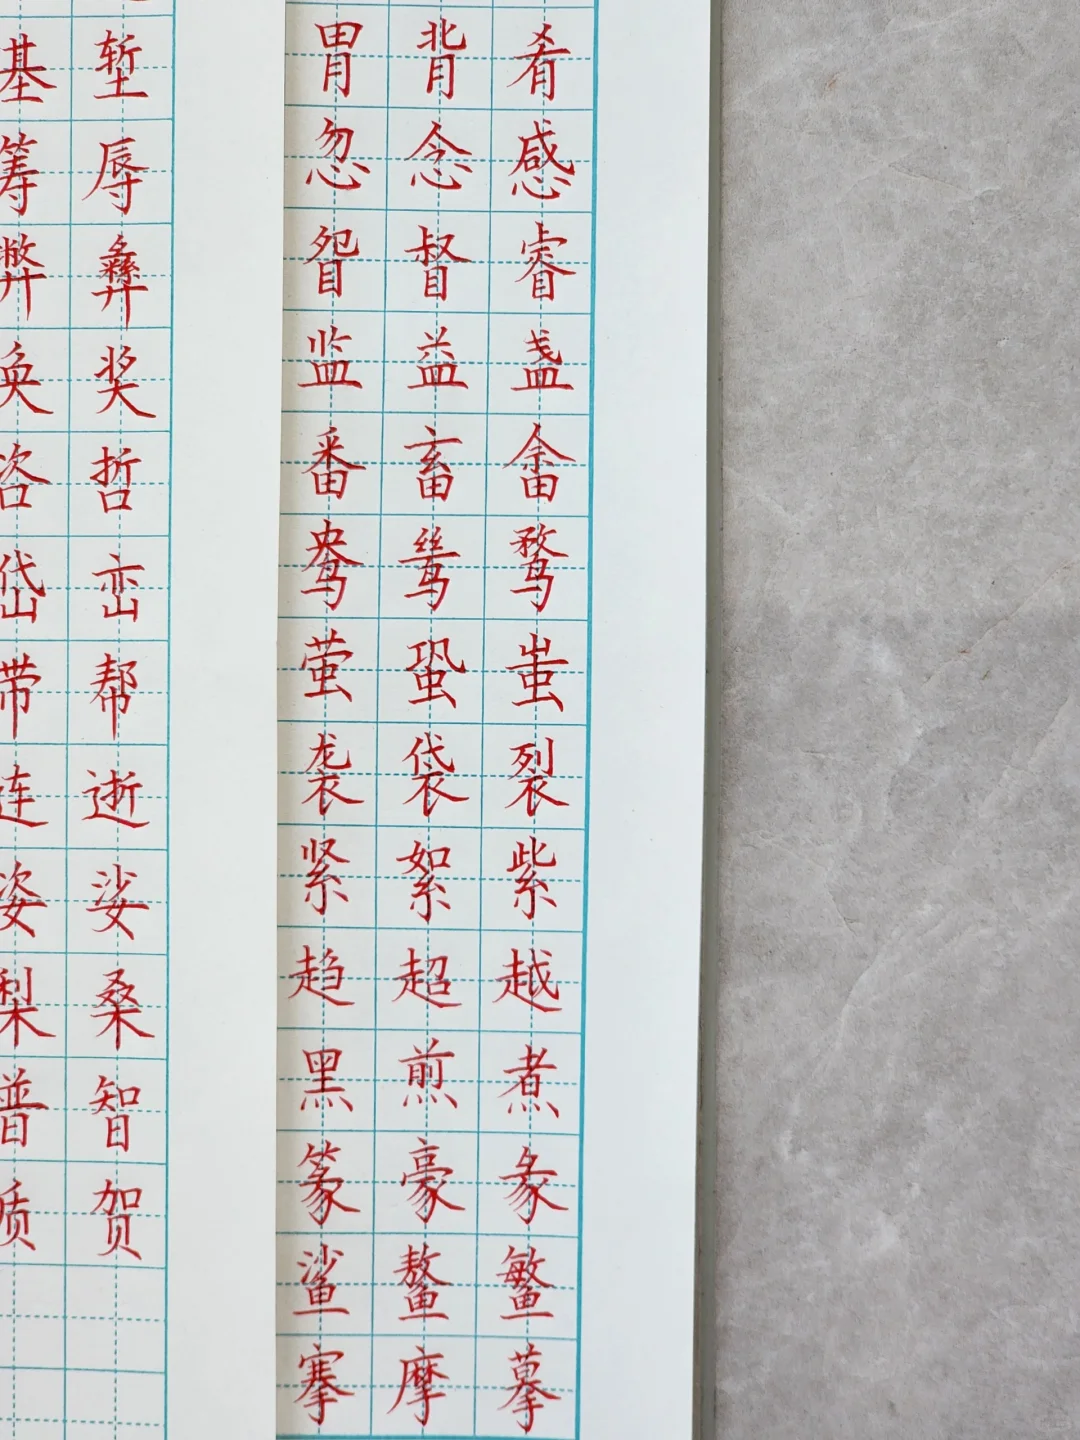 基 堑
筹 辱
弊 彝
奂 奖
咨 哲
岱 峦
带 帮
连 逝
姿 娑
梨 桑
普 智
质 贺
胃 背 肴
忽 念 感
眢 督 睿
监 益 盏
番 畜 畬
鸯 鸶 鹜
萤 蛩 蚩
袭 袋 裂
紧 絮 紫
趋 超 越
黑 煎 煮
篆 豪 彖
鲨 鳌 鳘
搴 摩 摹